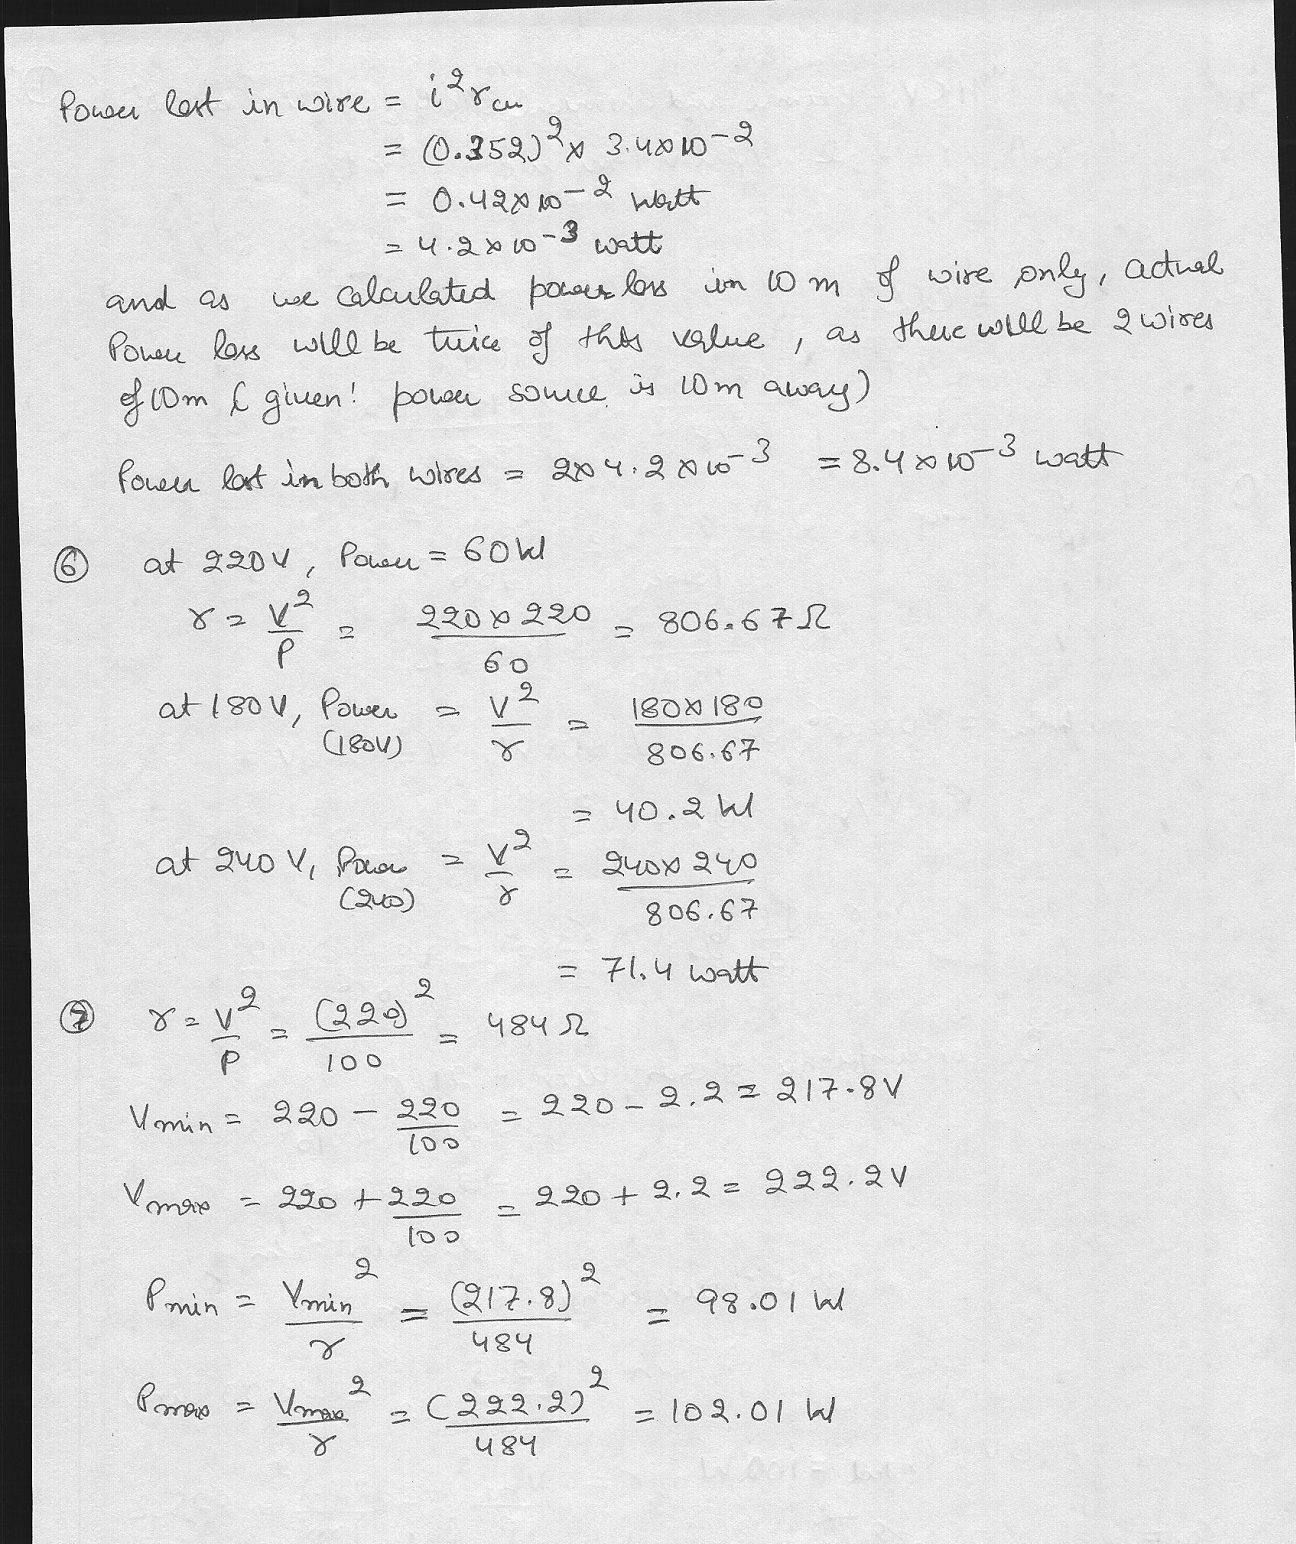 Power lost in wire = i²r_cu
= (0.352)² × 3.4×10⁻²
= 0.42×10⁻² Watt
= 4.2×10⁻³ watt
and as we calculated power loss in 10 m of wire only, actual
Power loss will be twice of this value, as there will be 2 wires
of 10m (given! power source is 10m away)
Power lost in both wires = 2×4.2×10⁻³ = 8.4×10⁻³ watt
⑥ at 220V, Power = 60W
r = V²/P = 220×220/60 = 806.67Ω
at 180V, Power (180V) = V²/r = 180×180/806.67
= 40.2 W
at 240 V, Power (240) = V²/r = 240×240/806.67
= 71.4 watt
⑦ r = V²/P = (220)²/100 = 484Ω
Vmin = 220 − 220/100 = 220 − 2.2 = 217.8V
Vmax = 220 + 220/100 = 220 + 2.2 = 222.2V
Pmin = Vmin²/r = (217.8)²/484 = 98.01 W
Pmax = Vmax²/r = (222.2)²/484 = 102.01 W